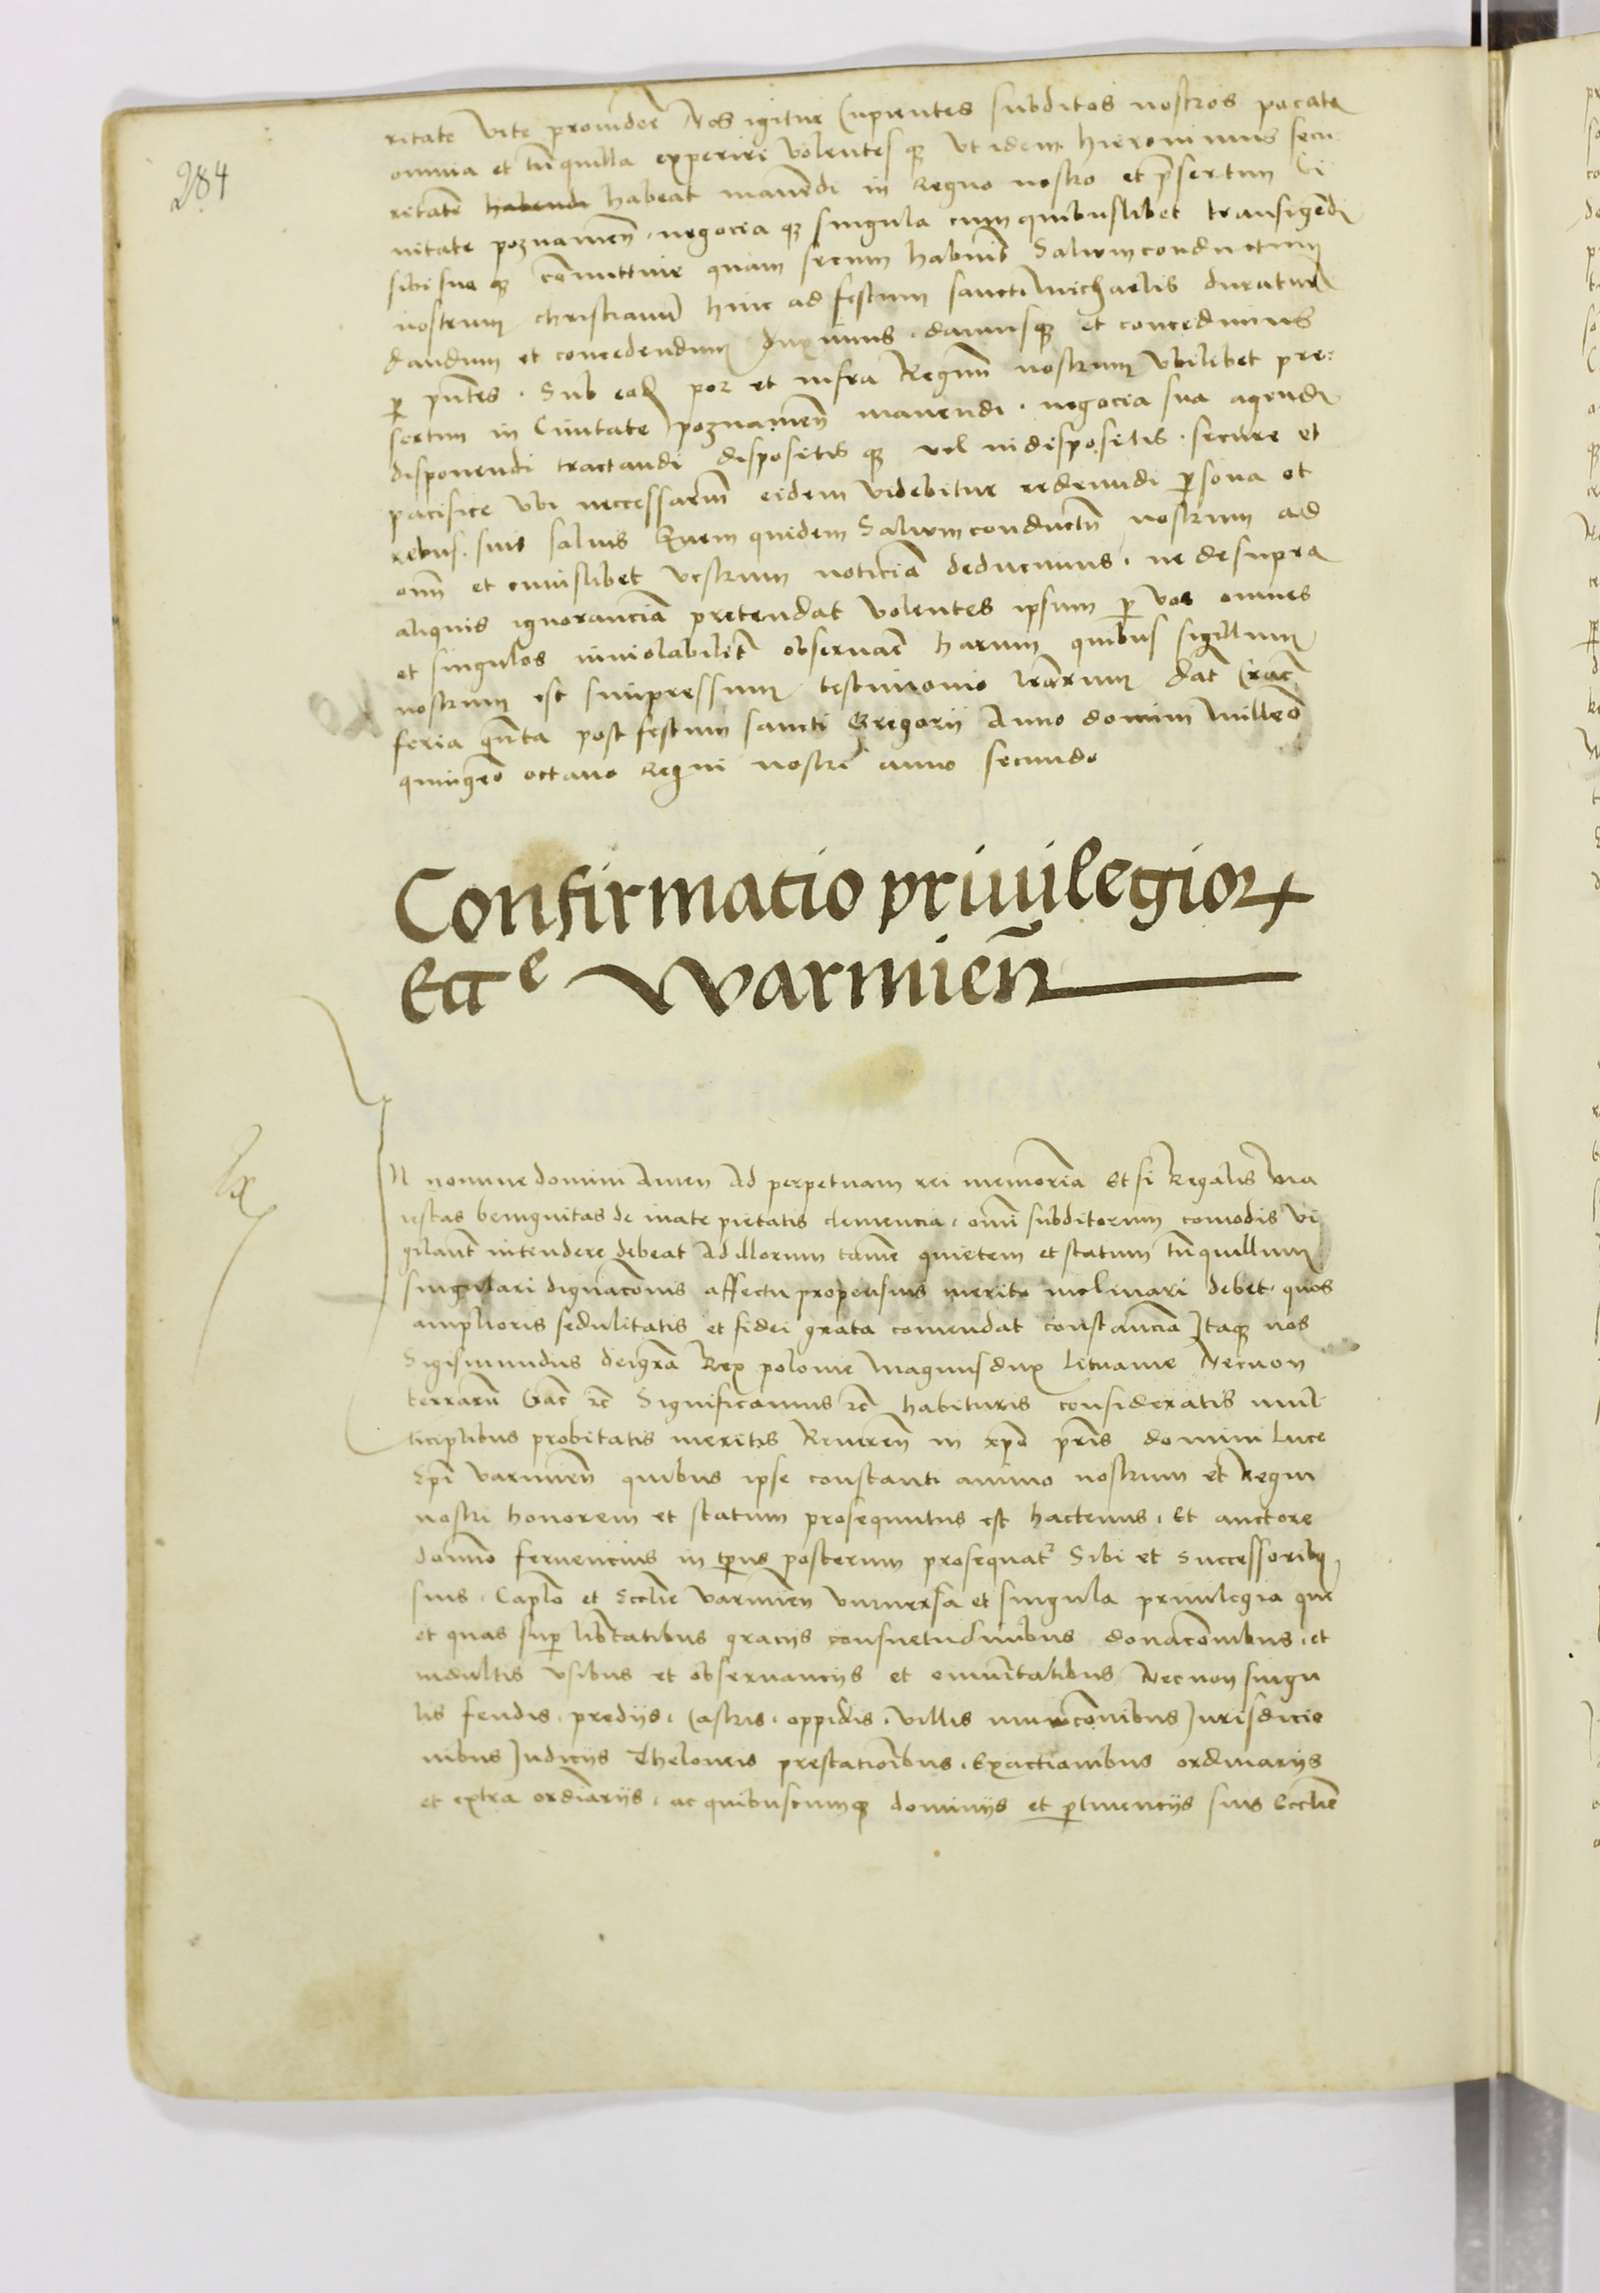 284
ritate vite prouider̄ Nos igitur Cupientes subditos nostros pacata
omnia et tr̄nquilla experiri volentes qȝ vt idem hieronimus secu
ritatē habendi habeat manendi in Regno nostro et p̄sertum Ci
uitate poznanien̄ . negocia qȝ singula cum quibuslibet transigendi
sibi sue qȝ comittiue quam secum habuit Saluumconductum
nostrum christianū hinc ad festum sancti Michaelis duratur̄
dandum et concedendum duximus . damusqȝ et concedimus
p̄ pn̄tes . Sub eod̄ per et infra Regnū nostrum vbilibet pre:
sertim in Ciuitate poznanien̄ manendi . negocia sua agendi
disponendi tractandi dispositis qȝ vel indispositis . secure et
pacifice vbi neccessariū eidem videbitur redeundi p̄sona et
rebus . suis saluis Quem quidem Saluumconductū nostrum ad
omn̄ et cuiuslibet vestrum noticiā deducimus . ne desupra
aliquis ignoranciā pretendat volentes ipsum p̄ vos omnes
et singulos inuiolabilit̄ obseruari harum quibus sigillum
nostrum est subimpressum testimonio lrārum dat̄ Crac̄
feria quīta post festum sancti Gregorii Anno domini milleō
quingēō octauo Regni nostri anno secundo
Confirmacio priuilegioꝝ
Ecce Warmien̄
IN nomine domini Amen Ad perpetuam rei memoriā Et si Regalis Ma
iestas benignitas de inate pietatis clemencia . omni subditorum comodis vi
gilant̄ intendere debeat Ad illorum tamē quietem et statum tr̄nquillum
singulari dignacōnis affectu propensius merito inclinari debet . quos
amplioris sedulitatis et fidei grata comendat constancia Itaqȝ nos
Sigismundus dei grā Rex polonie Magnus dux lituanie Necnon
terrarū Crac̄ ꝛc̄ Significamus ꝛc̄ habituris consideratis mul
ticiplibus probitatis meritis Reueren̄ in xpō pr̄is domini Luce
Ep̄i Varmien̄ quibus ipse constanti animo nostrum et Regni
nostri honorem et statum prosequutus est hactenus . Et auctore
domino feruencius in tp̄us posterum prosequat̄ Sibi et Successoribꝰ
suis . Caplō et Ecclīe Varmien̄ vniuersa et singula priuilegia que
et quas sup̄ libtatibus gracijs consuetudinibus donacōnibus . et
indultis vsibus et obseruancijs et emūitatibus Necnon singu
lis feudis . predijs . Castris . oppidis . villis municōnibus Jurisdicio
nibus Judicijs Theloneis prestationibus . Exactionibus ordinarijs
et extra ordinarijs . ac quibuscumqȝ dominijs et p̄tinencijs suis Ecclīe